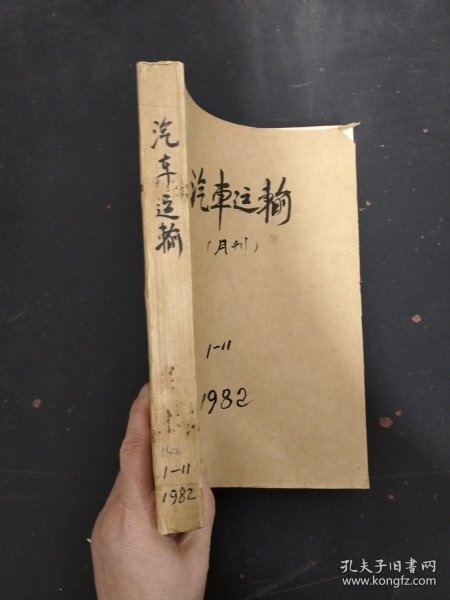 汽车运输
1-11
1982
汽車运输
(月刊)
1-11
1982
孔夫子旧书网
www.kongfz.com